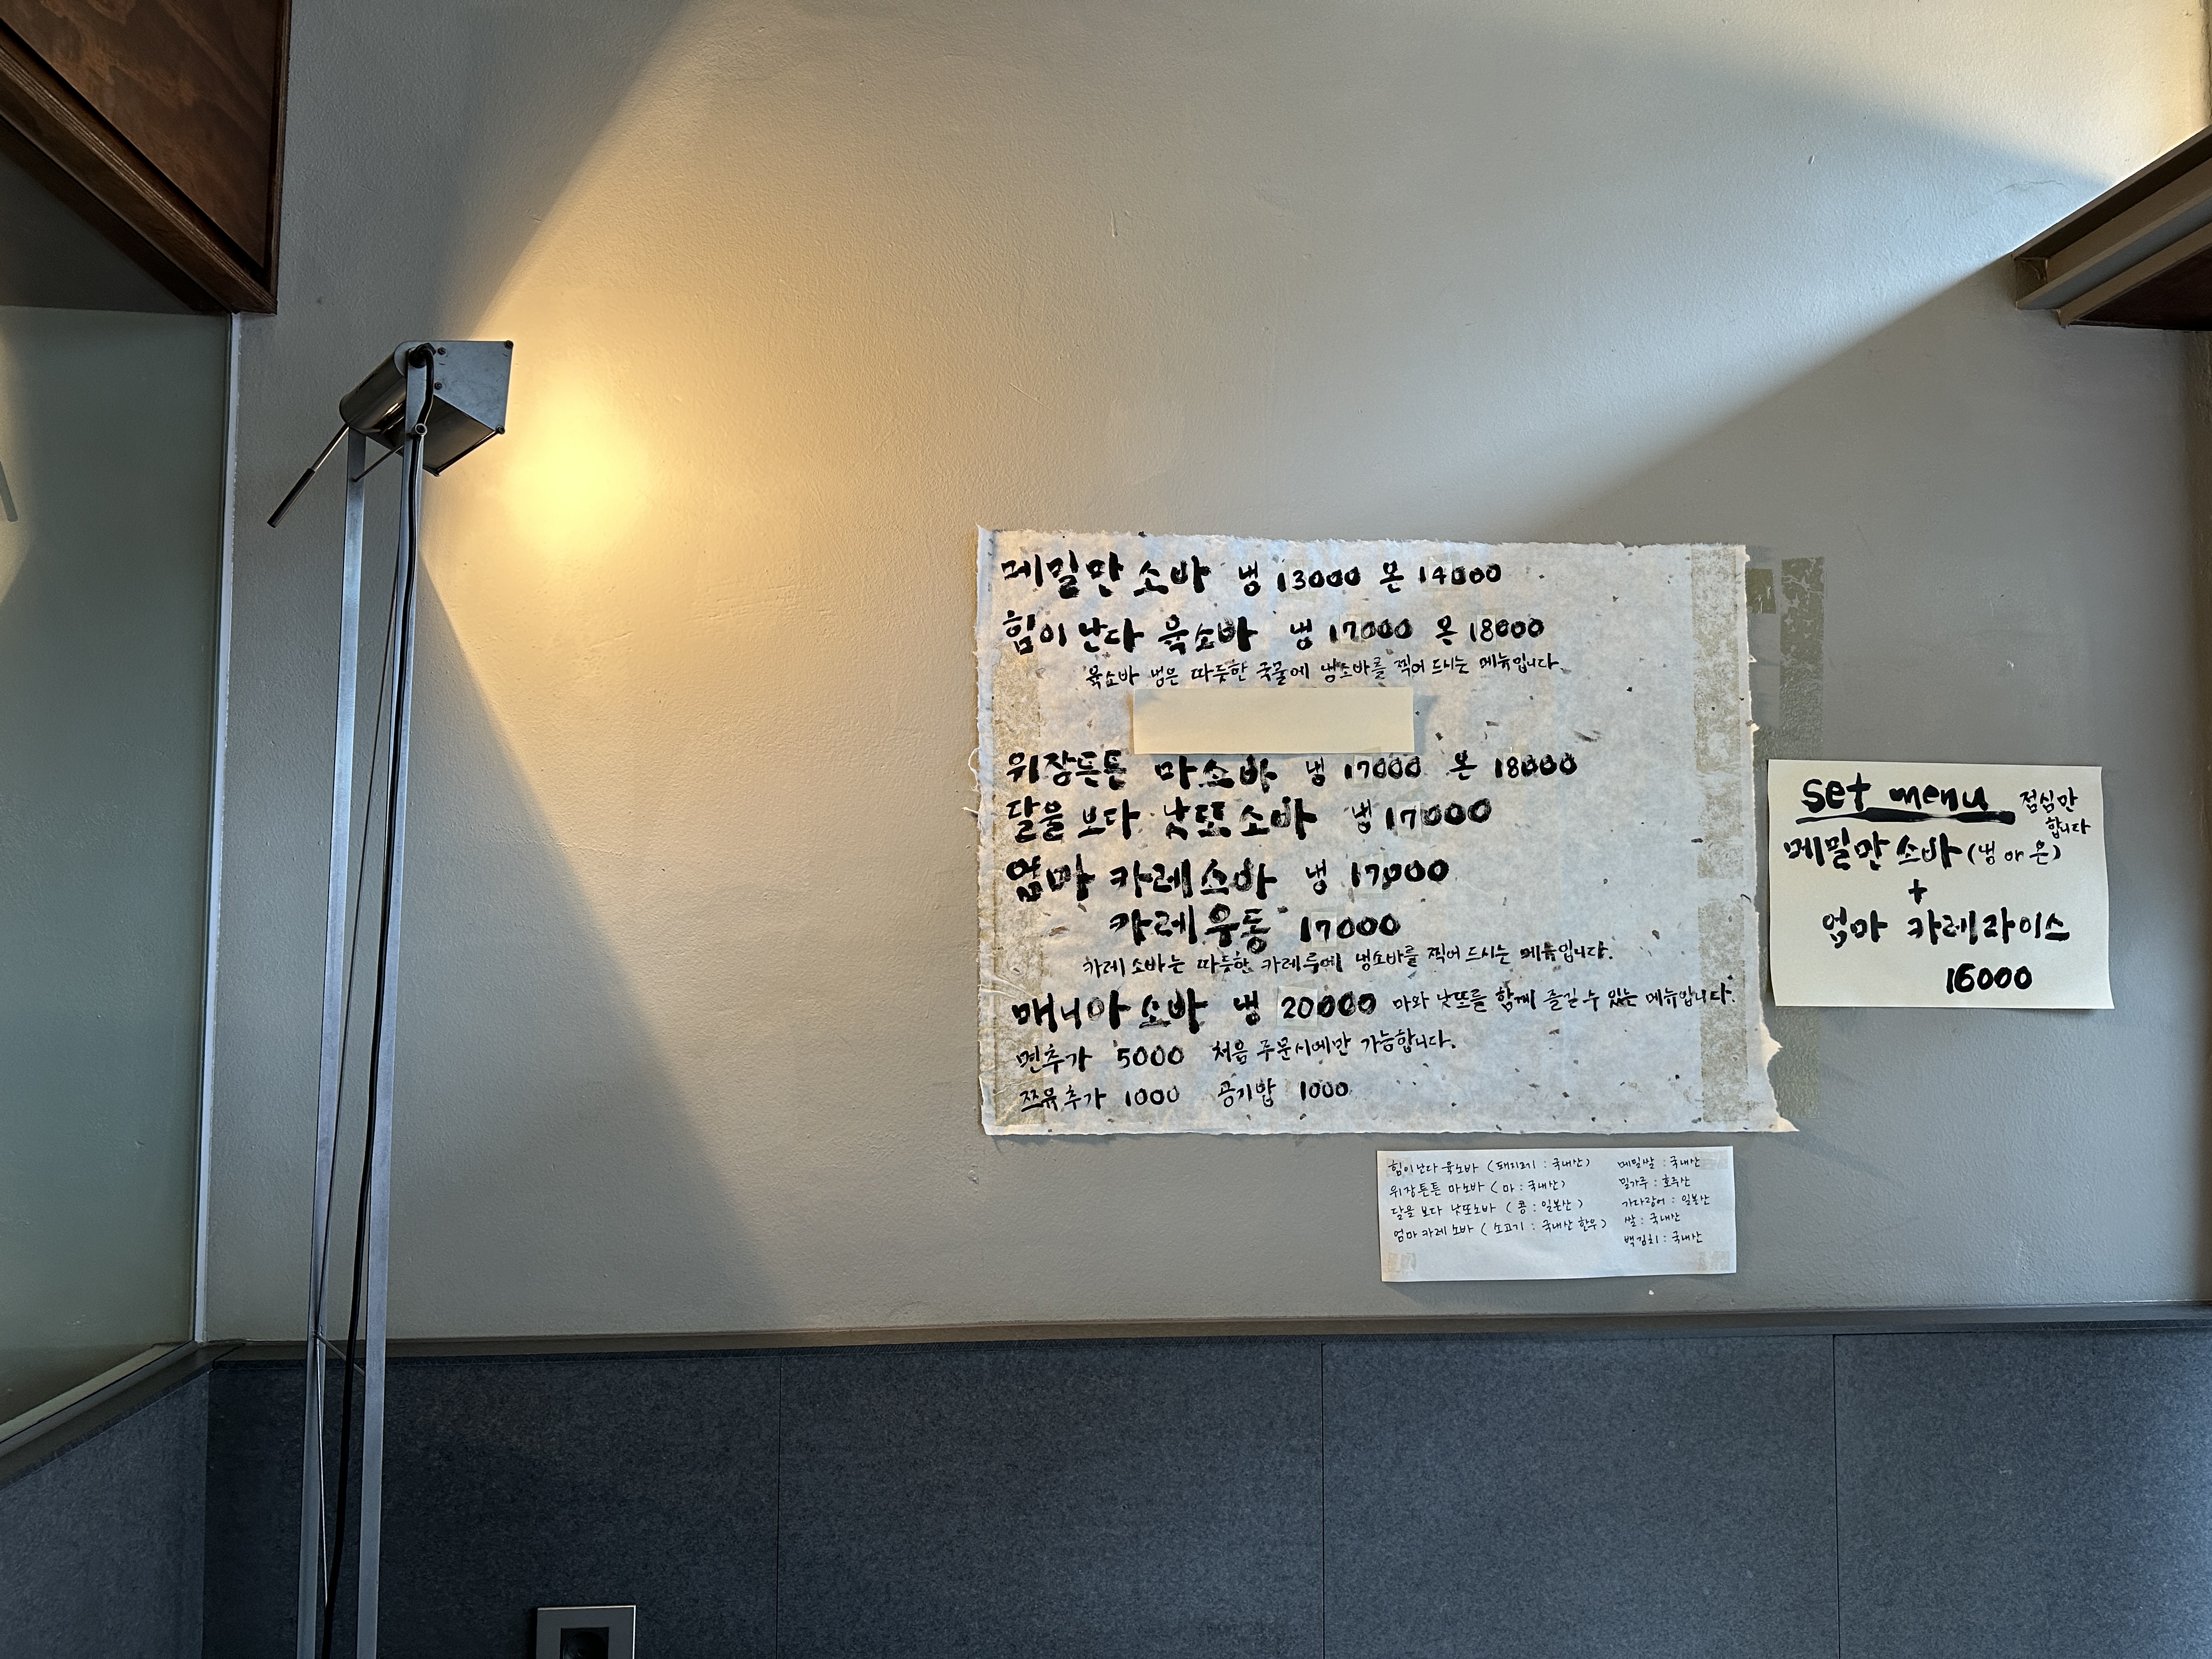 메밀만 소바 냉 13000 온 14000
힘이 난다 육소바 냉 17000 온 18000
육소바 냉은 따듯한 국물에 냉소바를 찍어 드시는 메뉴입니다.
위장튼튼 마소바 냉 17000 온 18000
달을 보다 낫또소바 냉 17000
엄마 카레소바 냉 17000
카레우동 17000
카레소바는 따듯한 카레루에 냉소바를 찍어 드시는 메뉴입니다.
매니아 소바 냉 20000 마와 낫또를 함께 즐길 수 있는 메뉴입니다.
면추가 5000 처음 주문시에만 가능합니다.
쯔유추가 1000 공기밥 1000
set menu 점심만
합니다
메밀만 소바 (냉 or 온)
+
엄마 카레라이스
16000
힘이난다 육소바 (돼지고기 : 국내산)
위장튼튼 마소바 (마 : 국내산)
달을 보다 낫또소바 (콩 : 일본산)
엄마 카레 소바 (소고기 : 국내산 한우)
메밀쌀 : 국내산
밀가루 : 호주산
가다랑어 : 일본산
쌀 : 국내산
백김치 : 국내산